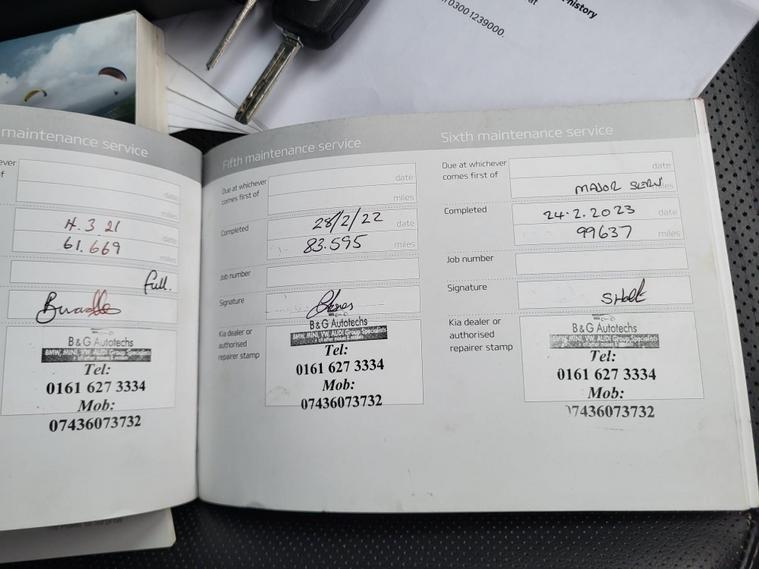 history
at
03001239000.
maintenance service
date
miles
4.3 21
61.669
full.
B & G Autotechs
BMW, MINI, VW, AUDI Group Specialists
Tel:
0161 627 3334
Mob:
07436073732
Fifth maintenance service
Due at whichever
comes first of
date
miles
Completed
28/2/22 date
83.595 miles
Job number
Signature
Kia dealer or
authorised
repairer stamp
B & G Autotechs
BMW, MINI, VW, AUDI Group Specialists
Tel:
0161 627 3334
Mob:
07436073732
Sixth maintenance service
Due at whichever
comes first of
date
MAJOR miles
Completed
24.2.2023 date
99637 miles
Job number
Signature
Kia dealer or
authorised
repairer stamp
B & G Autotechs
BMW, MINI, VW, AUDI Group Specialists
Tel:
0161 627 3334
Mob:
07436073732